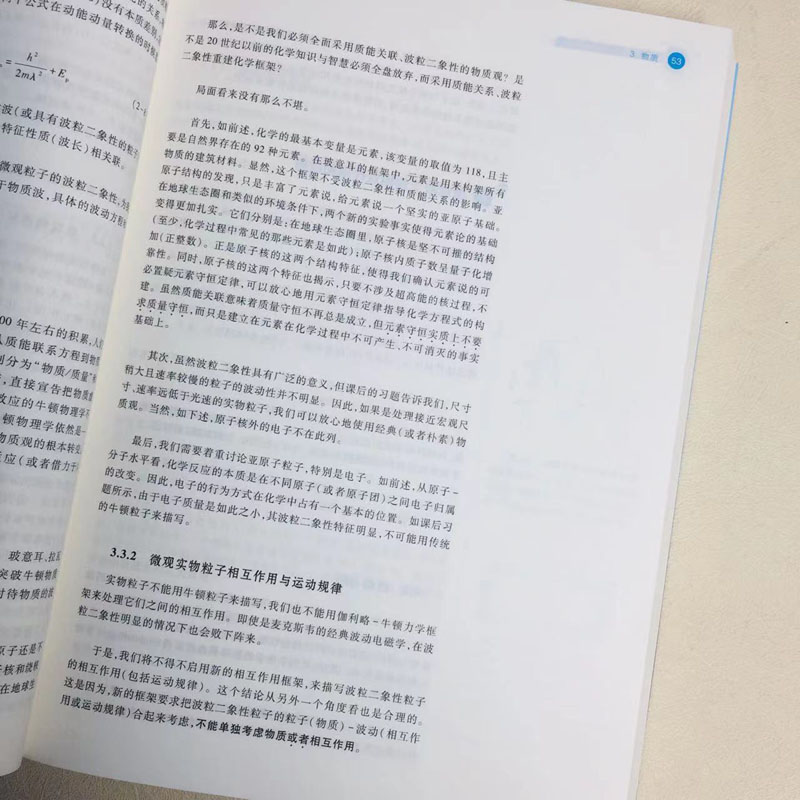 个公式在动能动量转换的时候
= h²/2mλ² + Eₚ
(2-6
波(或具有波粒二象性的粒子
特征性质(波长)相关联。
微观粒子的波粒二象性,为
于物质波,具体的波动方程
00 年左右的积累,人
质能联系方程到物
划分为“物质/质量”
,直接宣告把物质
效应的牛顿物理学不
牛顿物理学依然是一
物质观的根本转变
反应(或者借力于
玻意耳、拉
突破牛顿物质
对待物质的
原子还是不
子核和绕核
在地球生
3. 物质 53
那么,是不是我们必须全而采用质能关联、波粒二象性的物质观?是
不是 20 世纪以前的化学知识与智慧必须全盘放弃,而采用质能关系、波粒
二象性重建化学框架?
局面看来没有那么不堪。
首先,如前述,化学的最基本变量是元素,该变量的取值为 118,且主
要是自然界存在的 92 种元素。在玻意耳的框架中,元素是用来构架所有
物质的建筑材料。显然,这个框架不受波粒二象性和质能关系的影响。亚
原子结构的发现,只是丰富了元素说,给元素说一个坚实的亚原子基础。
在地球生态圈和类似的环境条件下,两个新的实验事实使得元素论的基础
变得更加扎实。它们分别是:在地球生态圈里,原子核是坚不可摧的结构
(至少,化学过程中常见的那些元素是如此);原子核内质子数呈量子化增
加(正整数)。正是原子核的这两个结构特征,使得我们确认元素说的可
靠性。同时,原子核的这两个特征也揭示,只要不涉及超高能的核过程,不
必置疑元素守恒定律,可以放心地用元素守恒定律指导化学方程式的构
建。虽然质能关联意味着质量守恒不再总是成立,但元素守恒实质上不要
求质量守恒,而只是建立在元素在化学过程中不可产生、不可消灭的事实
基础上。
其次,虽然波粒二象性具有广泛的意义,但课后的习题告诉我们,尺寸
稍大且速率较慢的粒子的波动性并不明显。因此,如果是处理接近宏观尺
寸、速率远低于光速的实物粒子,我们可以放心地使用经典(或者朴素)物
质观。当然,如下述,原子核外的电子不在此列。
最后,我们需要着重讨论亚原子粒子,特别是电子。如前述,从原子-
分子水平看,化学反应的本质是在不同原子(或者原子团)之间电子归属
的改变。因此,电子的行为方式在化学中占有一个基本的位置。如课后习
题所示,由于电子质量是如此之小,其波粒二象性特征明显,不可能用传统
的牛顿粒子来描写。
3.3.2 微观实物粒子相互作用与运动规律
实物粒子不能用牛顿粒子来描写,我们也不能用伽利略-牛顿力学框
架来处理它们之间的相互作用。即使是麦克斯韦的经典波动电磁学,在波
粒二象性明显的情况下也会败下阵来。
于是,我们将不得不启用新的相互作用框架,来描写波粒二象性粒子
的相互作用(包括运动规律)。这个结论从另外一个角度看也是合理的。
这是因为,新的框架要求把波粒二象性粒子的粒子(物质)-波动(相互作
用或运动规律)合起来考虑,不能单独考虑物质或者相互作用。